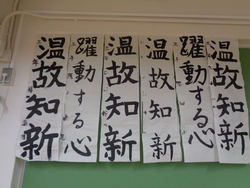 温故知新
躍動する心
温故知新
温故知新
躍動する心
温故知新